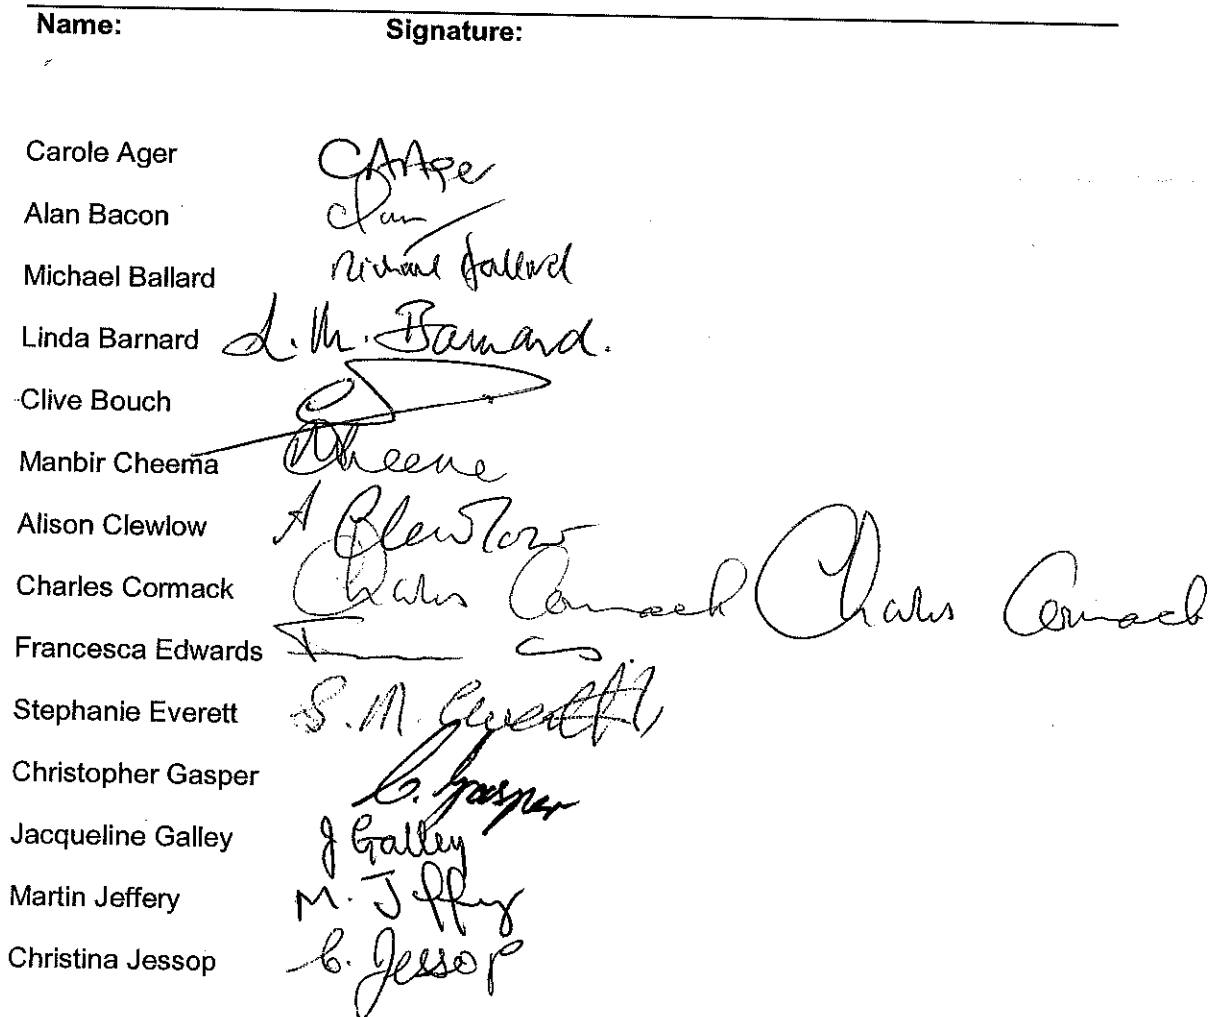 Name: Signature:
Carole Ager CAAger
Alan Bacon
Michael Ballard Michael Ballard
Linda Barnard L. M. Barnard.
Clive Bouch
Manbir Cheema Cheema
Alison Clewlow A Clewlow
Charles Cormack Charles Cormack Charles Cormack
Francesca Edwards
Stephanie Everett S. M. Everett
Christopher Gasper C. Gasper
Jacqueline Galley J Galley
Martin Jeffery M. Jeffery
Christina Jessop C. Jessop